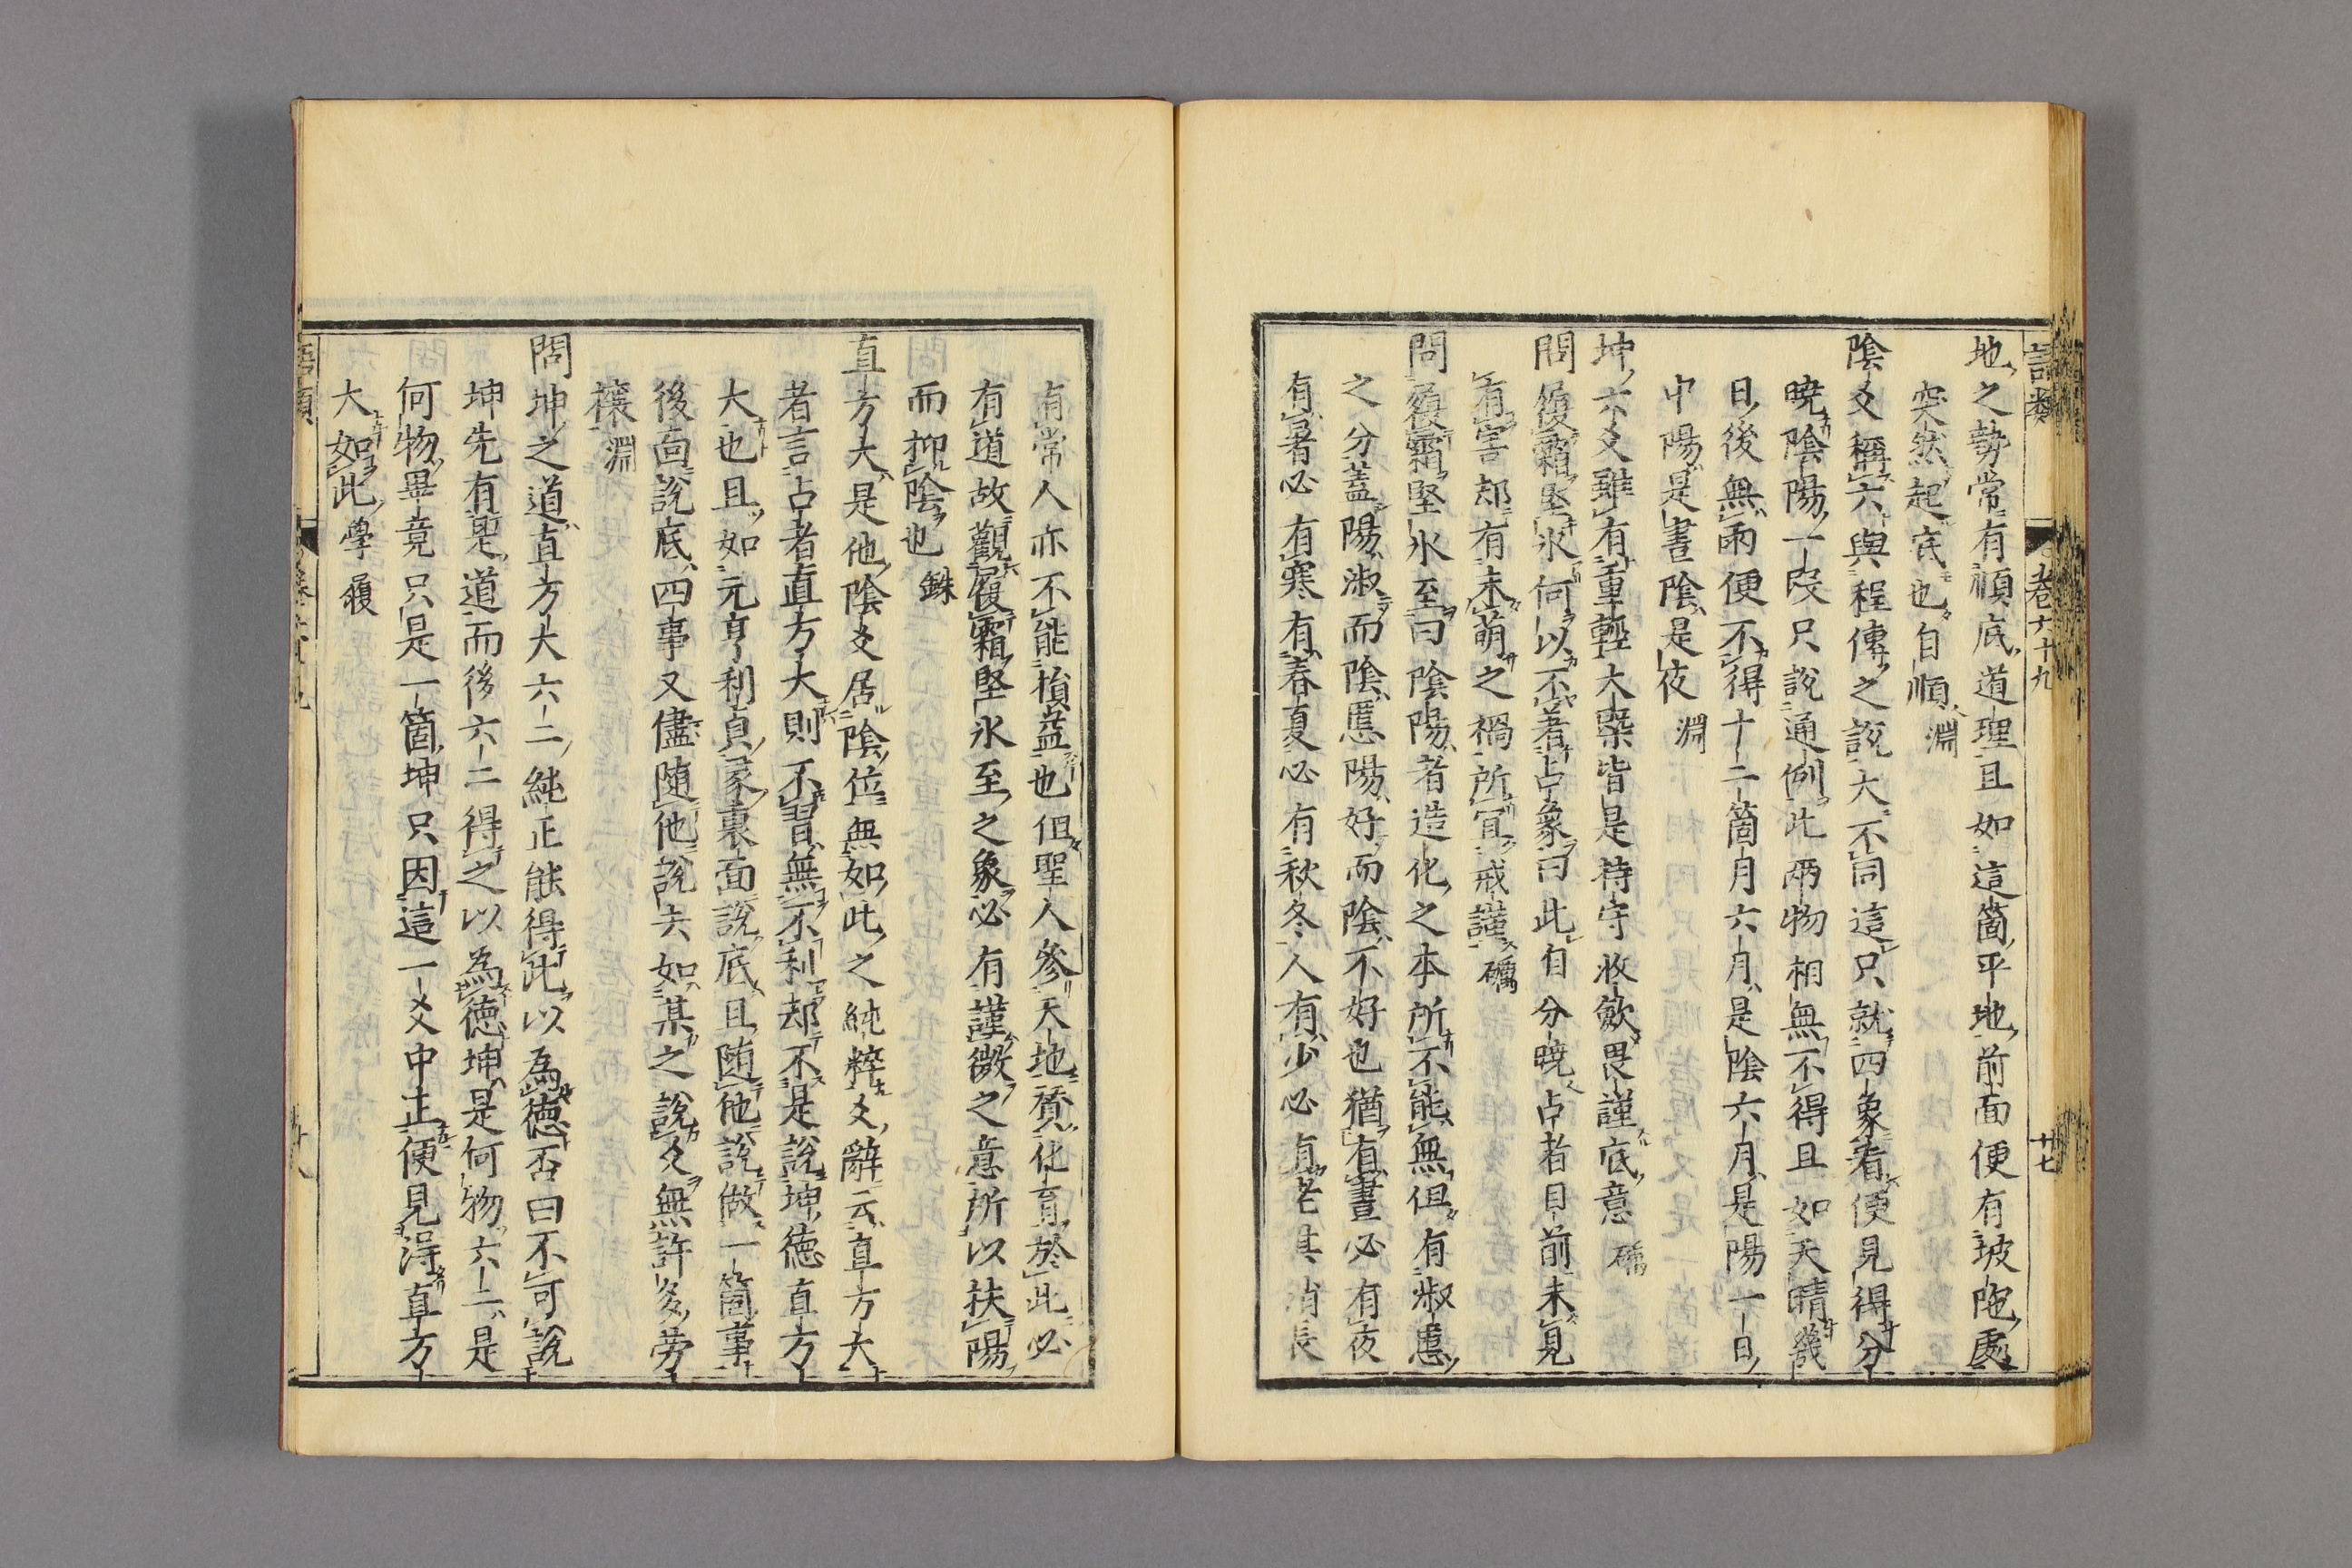 語類
卷六十九
廿七
地之勢常有順底道理且如這箇平地前面便有坡陁處
突然起底也自順淵
陰爻稱六與程傳之說大不同這只就四象看便見得分
曉陰陽一段只說通例此兩物相無不得且如天晴幾
日後無雨便不得十二箇月六月是陰六月是陽一日
中陽是晝陰是夜淵
坤六爻雖有重輕大槩皆是持守收斂畏謹底意礪
問履霜堅氷何以不著占象曰此自分曉占者目前未見
有害却有未萌之禍所宜戒謹礪
問履霜堅氷至曰陰陽者造化之本所不能無但有淑慝
之分蓋陽淑而陰慝陽好而陰不好也猶有晝必有夜
有暑必有寒有春夏必有秋冬人有少必有老其消長
有常人亦不能損益也但聖人參天地贊化育於此必
有道故觀履霜堅氷至之象必有謹微之意所以扶陽
而抑陰也銖
直方大是他陰爻居陰位無如此之純粹爻辭云直方大
者言占者直方大則不習無不利却不是說坤德直方
大也且如元亨利貞彖裏面說底且隨他說做一箇事
後面說底四事又儘隨他說去如某之說爻無許多劳
穰淵
問坤之道直方大六二純正能得此以為德否曰不可說
坤先有是道而後六二得之以為德坤是何物六二是
何物畢竟只是一箇坤只因這一爻中正便見得直方
大如此學履
語類
卷六十九
廿八